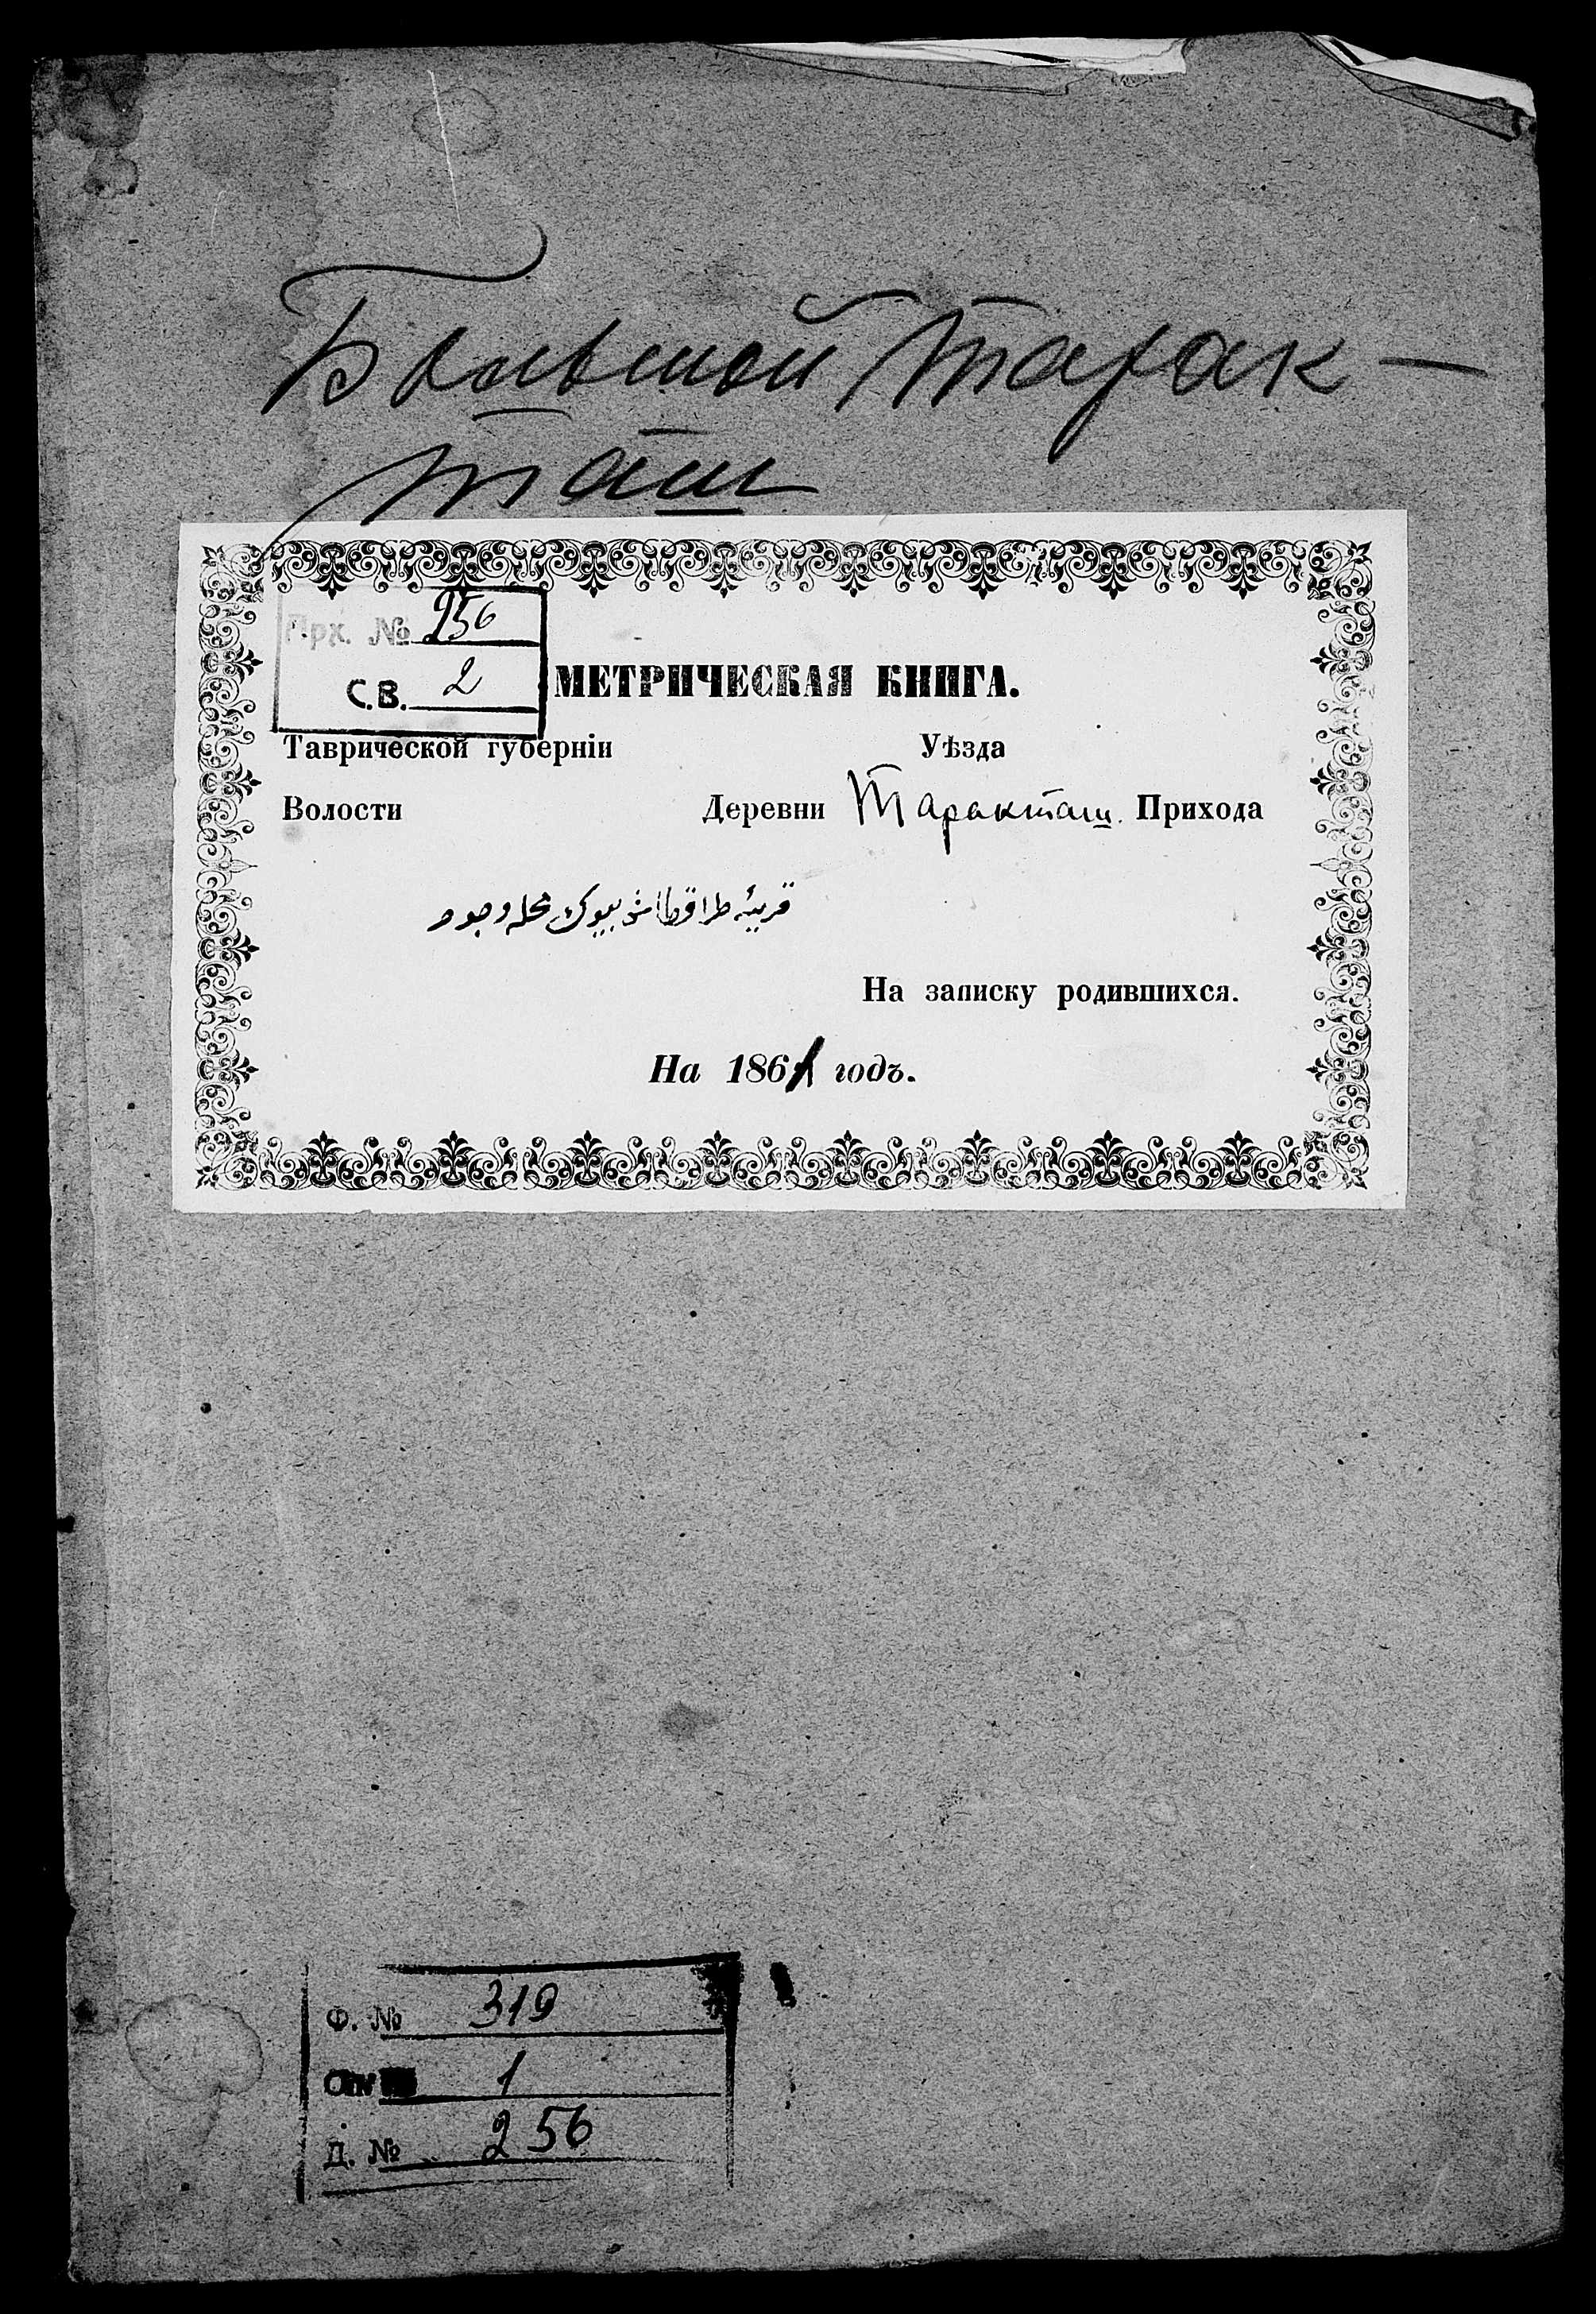 Большой Тарак-
таш
Арх. № 256
С.В. 2
МЕТРИЧЕСКАЯ КНИГА.
Таврической губерніи Уѣзда
Волости Деревни Таракташ. Прихода
قريۀ طراقطاش بيوك محله وجود
На записку родившихся.
На 1861 годъ.
Ф. № 319
Оп 1
Д. № 256